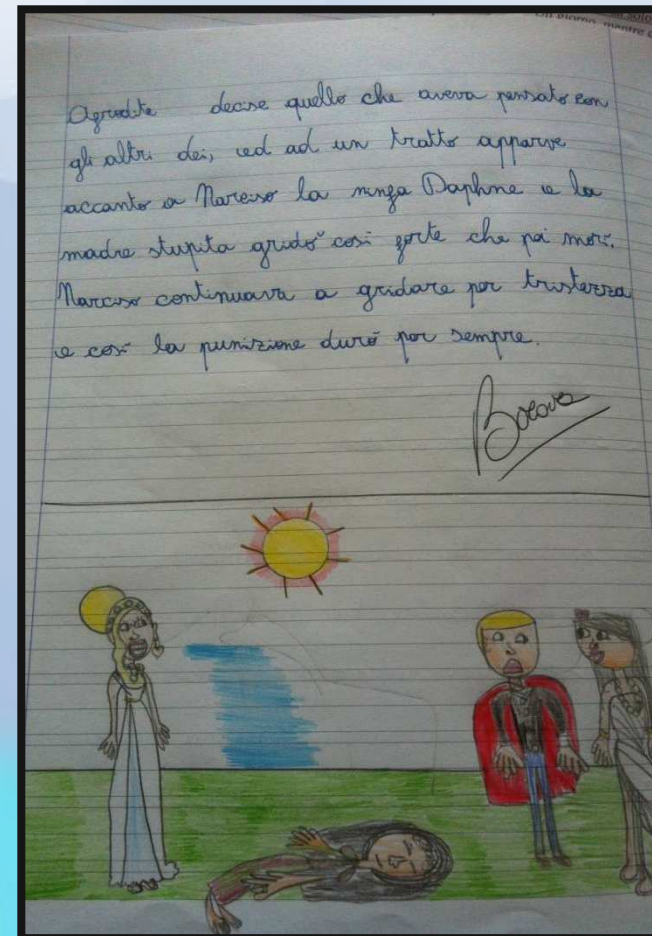 Un giorno, mentre
Agrodite decise quello che aveva pensato con
gli altri dei, ed ad un tratto apparve
accanto a Narciso la ninfa Daphne e la
madre stupita gridò così forte che poi morì.
Narciso continuava a gridare per tristezza
e così la punizione durò per sempre.